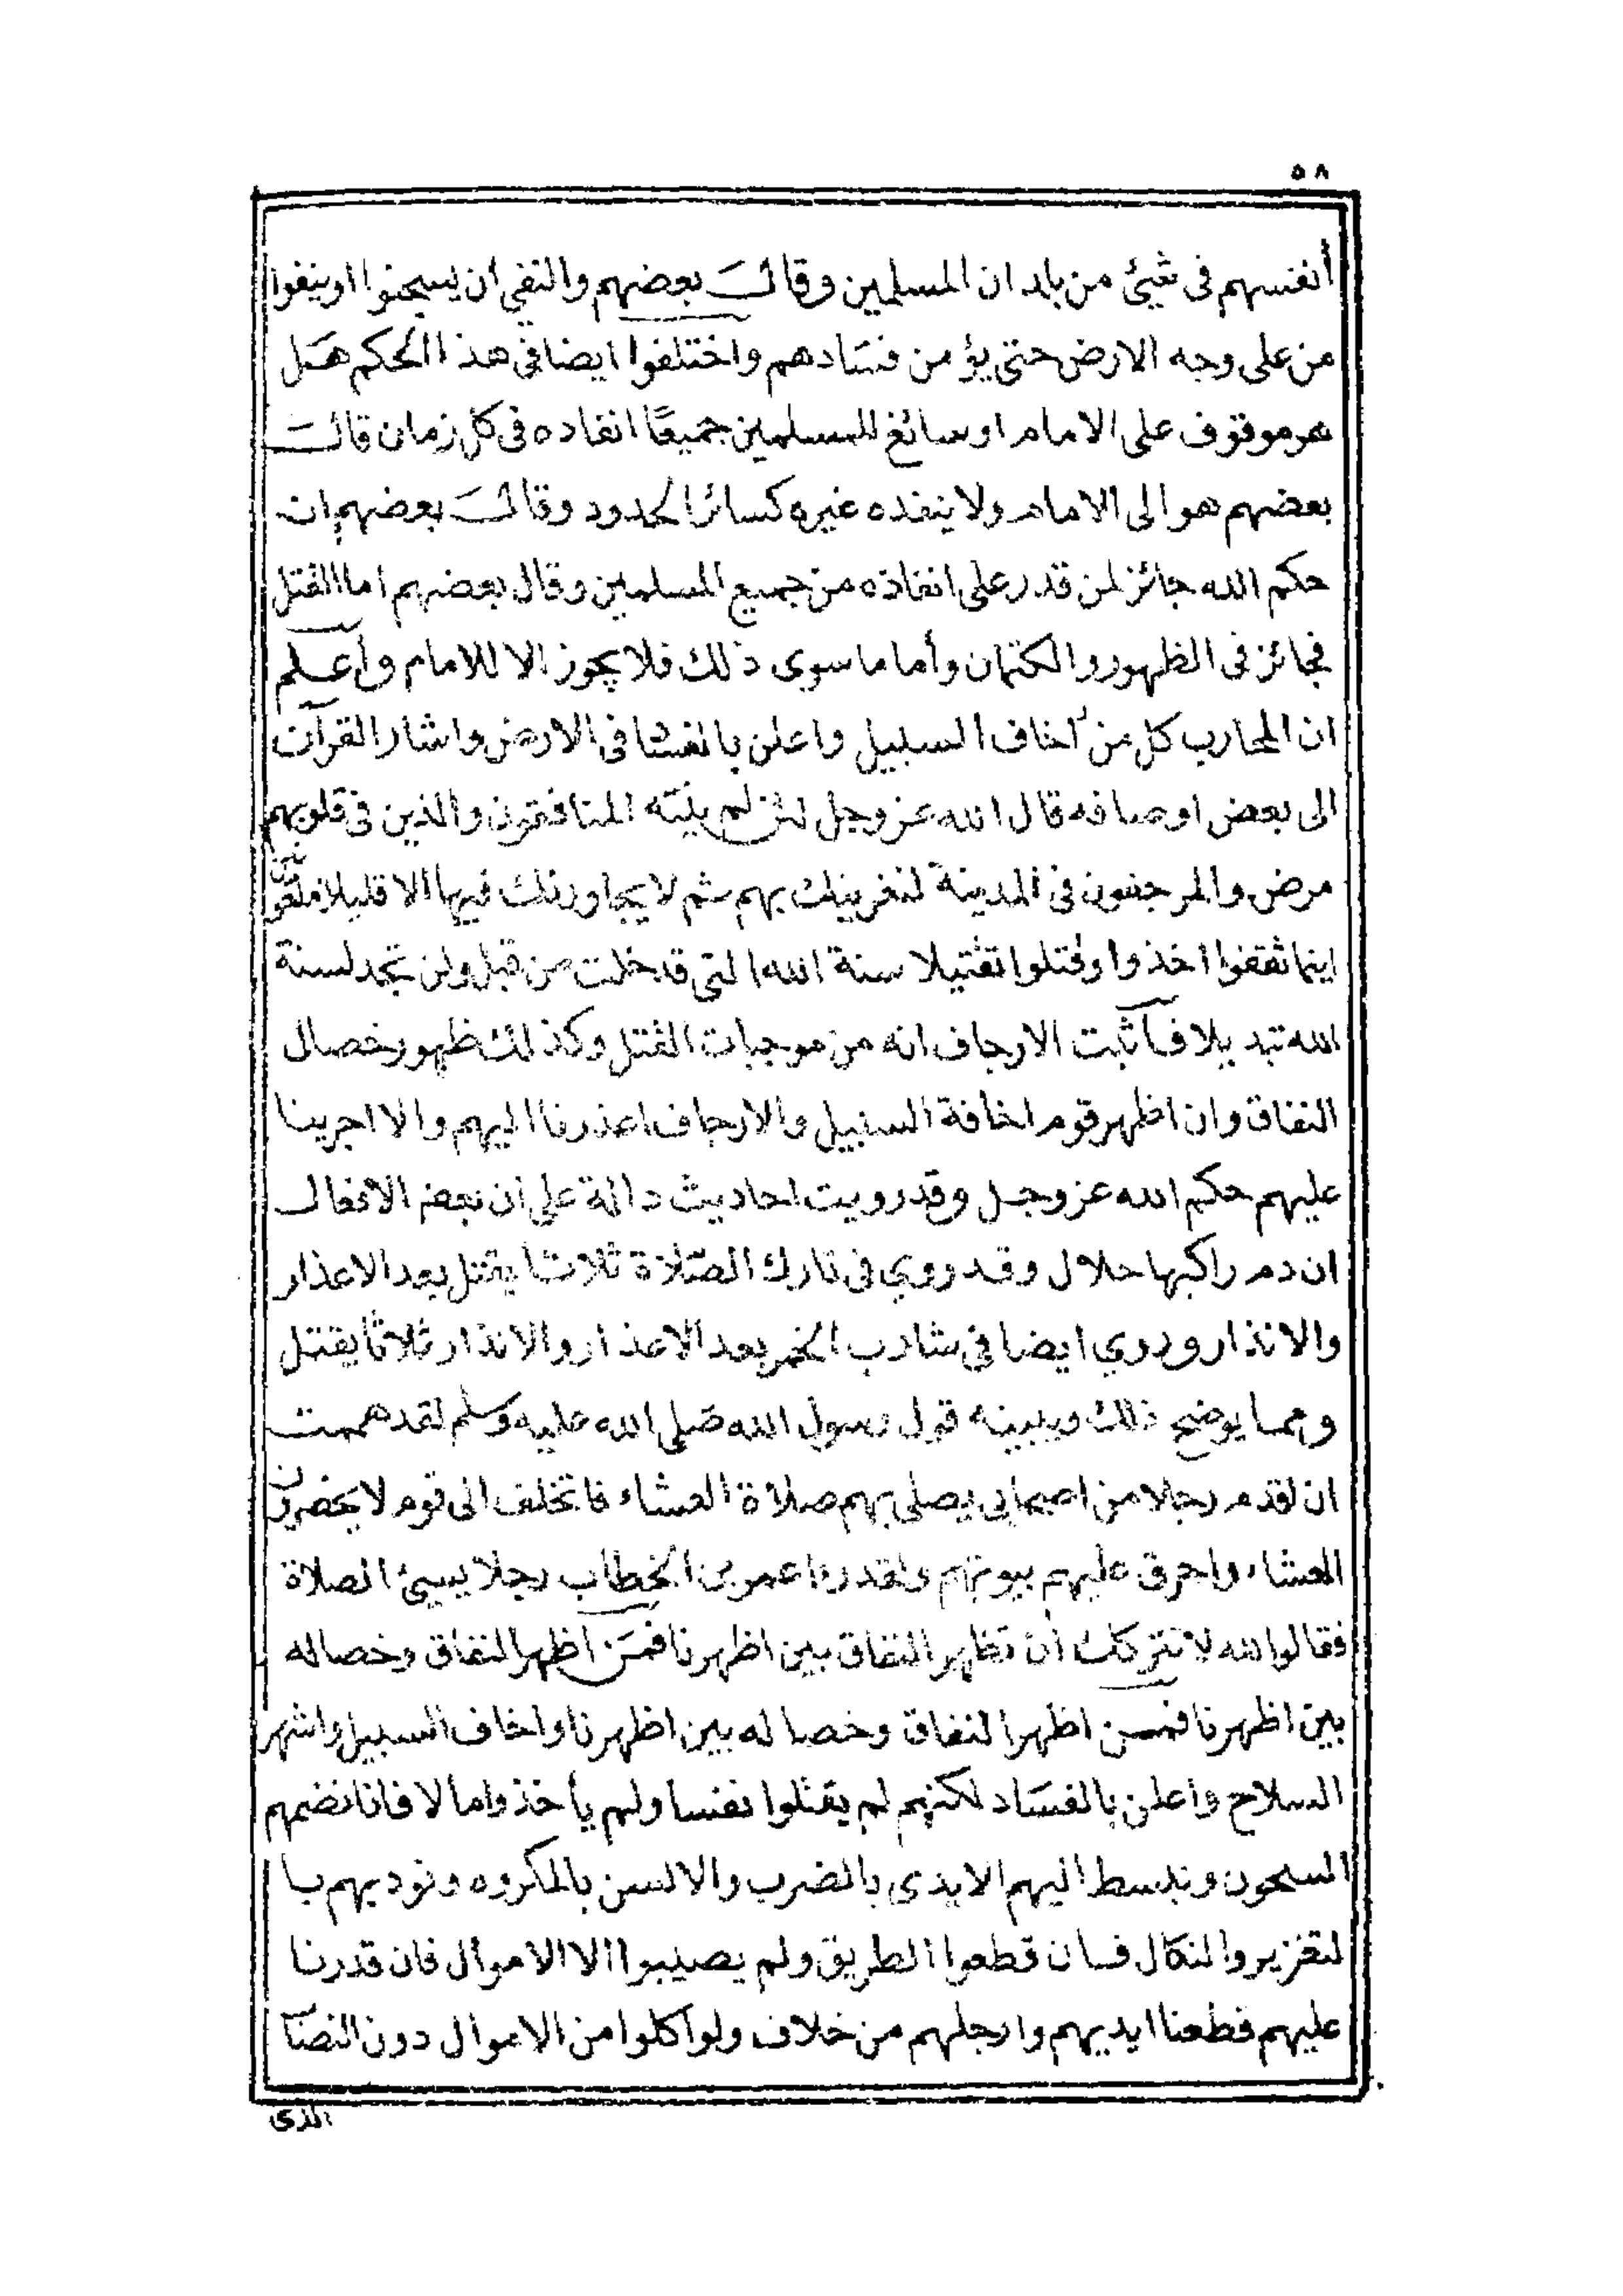 ٥٨
أنفسهم فى شيئ من بلدان المسلمين وقال بعضهم والنفي أن يسجنوا اوينفوا
من على وجه الارض حتى يؤمن فسادهم واختلفوا ايضا في هذا الحكم هل
هو موقوف على الامام او سائغ للمسلمين جميعًا انفاده فى كل زمان قال
بعضهم هو الى الامام ولا ينفده غيره كسائر الحدود وقال بعضهم ان
حكم الله جائز لمن قدر على انفاذه من جميع المسلمين وقال بعضهم اما القتل
فجائز فى الظهور والكتمان وأما ما سوى ذلك فلا يجوز الا للامام وأعلم
ان المحارب كل من أخاف السبيل واعلن بالفسا فى الارض واشار القرآن
الى بعض اوصافه قال الله عز وجل لئن لم ينته المنافقون والذين فى قلوبهم
مرض والمرجفون فى المدينة لنغرينك بهم ثم لا يجاورنك فيها الا قليلا ملعونين
اينما ثقفوا اخذوا وقتلوا تقتيلا سنة الله التى قد خلت من قبل ولن تجد لسنة
الله تبديلا فأثبت الارجاف انه من موجبات القتل وكذلك ظهور خصال
النفاق وان اظهر قوم اخافة السبيل والارجاف اعذرنا اليهم والا اجرينا
عليهم حكم الله عز وجل وقد رويت احاديث دالة على ان بعض الافعال
ان دم راكبها حلال وقد روي فى تارك الصّلاة ثلاثا يقتل بعد الاعذار
والانذار وروي ايضا فى شارب الخمر بعد الاعذار والانذار ثلاثا يقتل
ومما يوضح ذلك ويبينه قول رسول الله صلى الله عليه وسلم لقد هممت
ان اقدم رجلا من اصحابي يصلى بهم صلاة العشاء فاتخلف الى قوم لا يحضرون
العشاء واحرق عليهم بيوتهم ولقد رءا عمر بن الخطاب رجلا يسيئ الصلاة
فقال والله لا نتركك أن تظهر النفاق بين اظهرنا فمن اظهر النفاق وخصاله
بين اظهرنا فمن اظهر النفاق وخصاله بين اظهرنا واخاف السبيل واشهر
السلاح واعلن بالفساد لكنهم لم يقتلوا نفسا ولم يأخذوا مالا فانا نضمهم
السجون ونبسط اليهم الايدى بالضرب والالسن بالمكروه ونوديهم با
لتعزير والنكال فان قطعوا الطريق ولم يصيبوا الا الاموال فان قدرنا
عليهم قطعنا ايديهم وارجلهم من خلاف ولو اكلوا من الاموال دون النصا
الذى